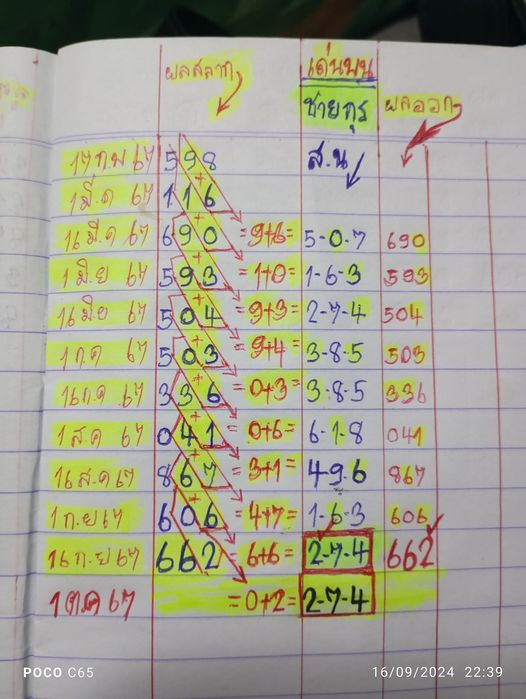 ผลสลาก เด่นบน
ชายกุร ผลออก
17 ก.พ 67 598 ส.น
1 มี.ค 67 116
16 มี.ค 67 690 =9+6= 5-0-7 690
1 มิ.ย 67 593 =1+0= 1-6-3 593
16 มิ.ย 67 504 =9+3= 2-7-4 504
1 ก.ค 67 503 =9+4= 3-8-5 503
16 ก.ค 67 336 =0+3= 3-8-5 336
1 ส.ค 67 041 =0+6= 6-1-8 041
16 ส.ค 67 867 =3+1= 4-9-6 867
1 ก.ย 67 606 =4+7= 1-6-3 606
16 ก.ย 67 662 =6+6= 2-7-4 662
1 ต.ค 67 =0+2= 2-7-4
POCO C65 16/09/2024 22:39